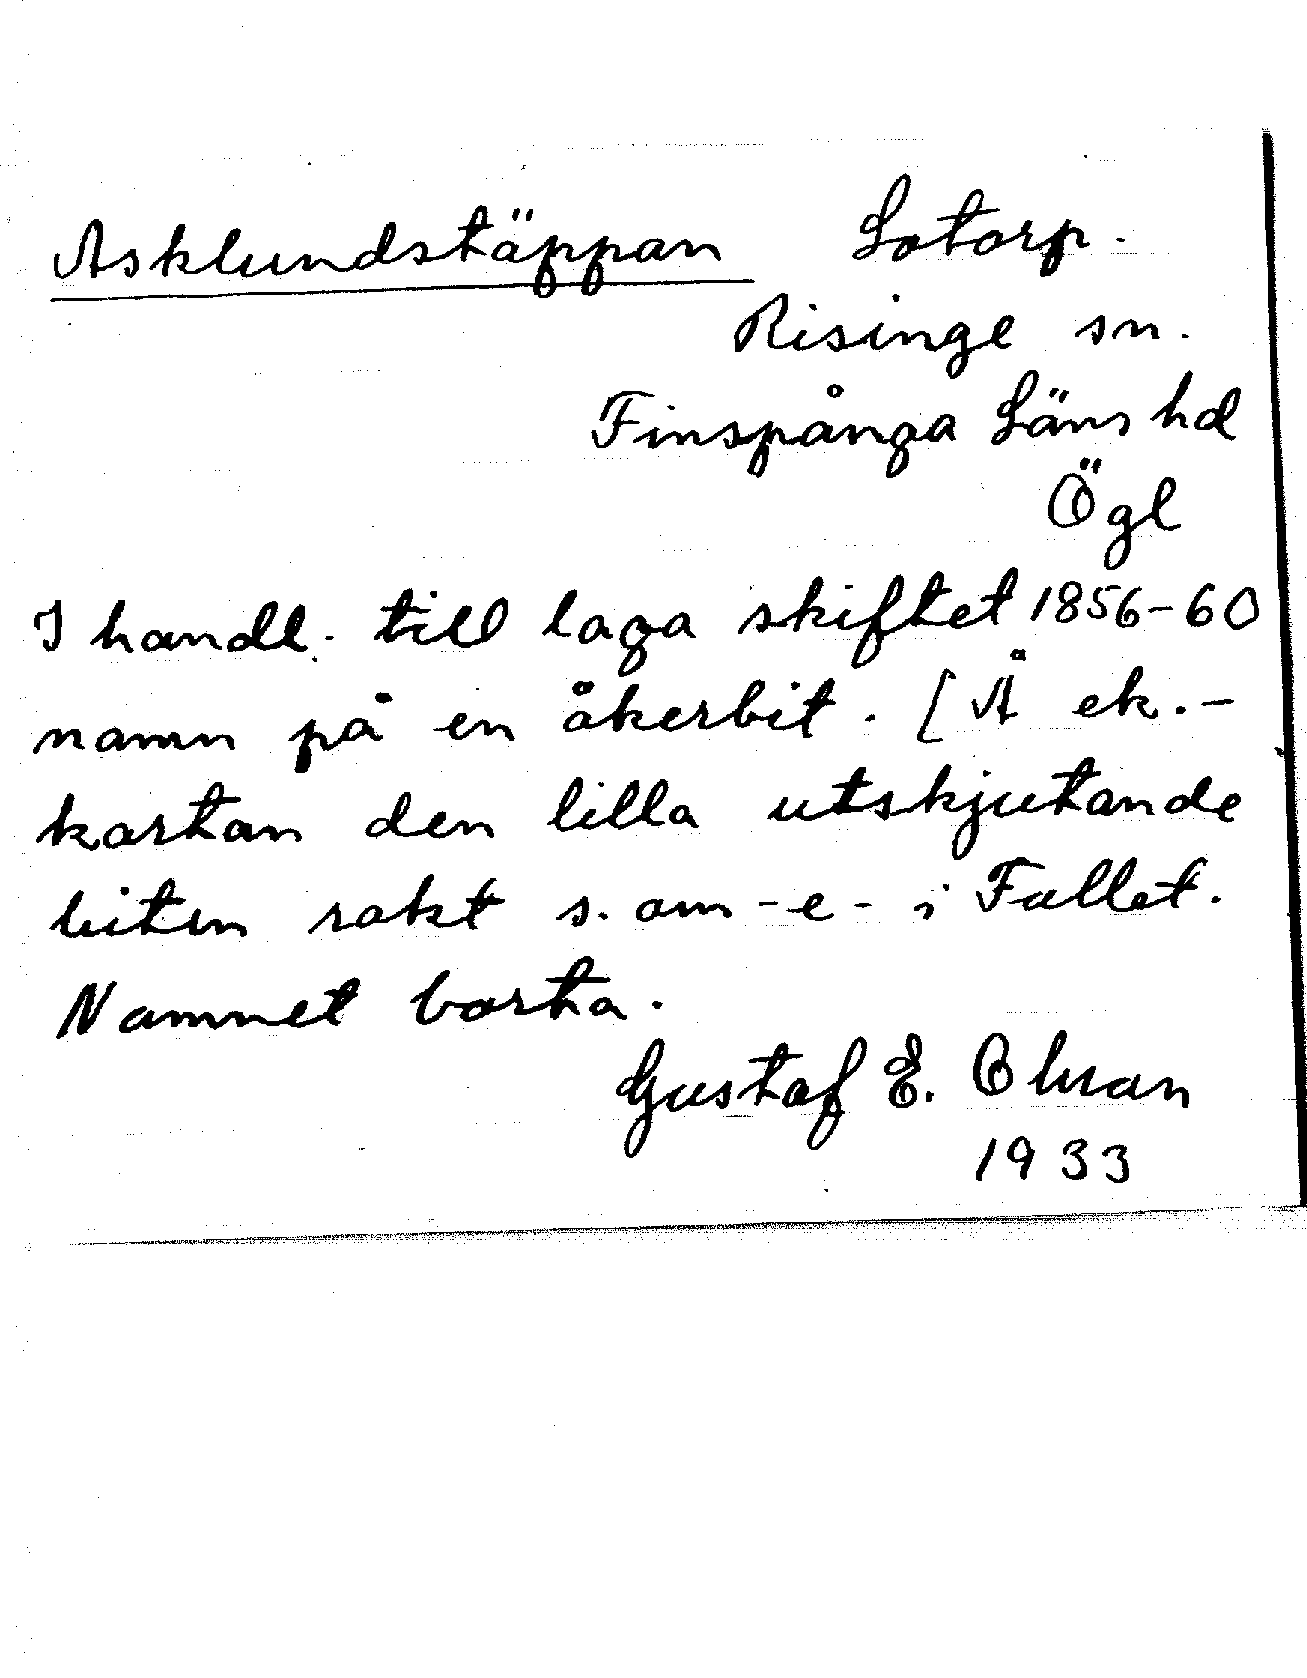 Asklundstäppan Lotorp.
Risinge sn.
Finspånga Läns hd
Ögl
I handl. till laga skiftet 1856-60
namn på en åkerbit. [Å ek.-
kartan den lilla utskjutande
biten rakt s. om -e- i Fallet.
Namnet borta.
Gustaf E. Olsson
1933